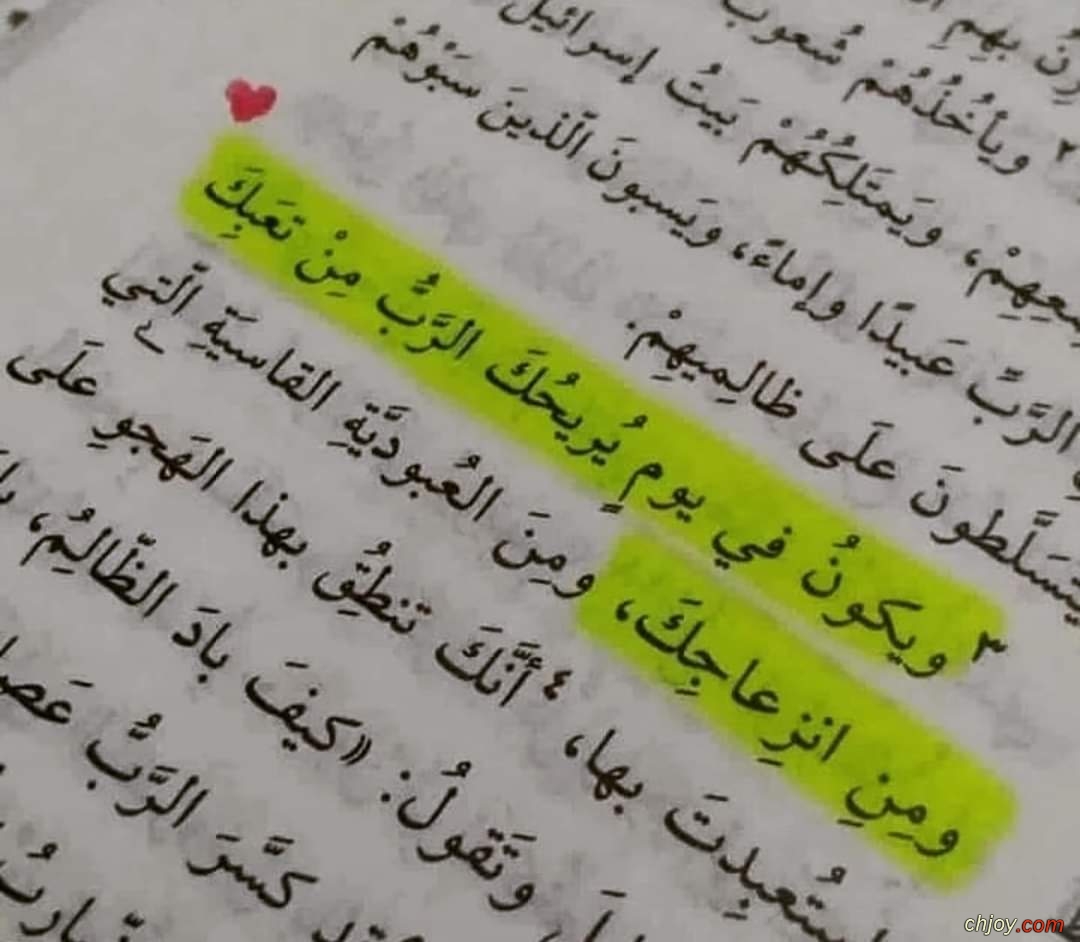 بهِمِ
٢ ويأخُذُهُمْ شُعوبٌ
ويَمتَلِكُهُمْ بَيتُ إسرائيلَ
الرَّبِّ عَبيدًا وإماءً، ويَسبونَ الّذينَ سَبَوْهُمْ
يتسَلَّطونَ علَى ظالِميهِمْ.
٣ ويكونُ في يومٍ يُريحُكَ الرَّبُّ مِنْ تعَبِكَ
ومِنِ انزِعاجِكَ، ومِنَ العُبوديَّةِ القاسيَةِ الّتي
استُعبِدتَ بها، ٤ أنَّكَ تنطُقُ بهذا الهَجوِ علَى
وتَقولُ: «كيفَ بادَ الظّالِمُ،
كسَّرَ الرَّبُّ عَصا
chjoy.com